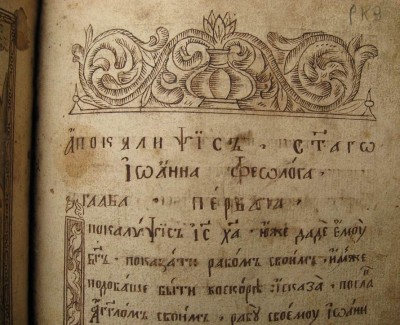 рка
а҆покалиѱїсъ · ст҃агѡ
і҆ѡа́нна ѳеоло́га ·
глава · пе́рваѧ ·
покалиѱїсъ і҆с҃ х҃а · ю҆́же дадѐ є҆мꙋ̀
бг҃ъ · показа́ти рабо́мъ свои̑мъ · и҆̀мже
подоба́ше бы́ти воско́рѣ и҆сказа̀ · посла́
а҆́гг҃ломъ свои́мъ · рабꙋ̀ своемꙋ̀ і҆ѡа́нн